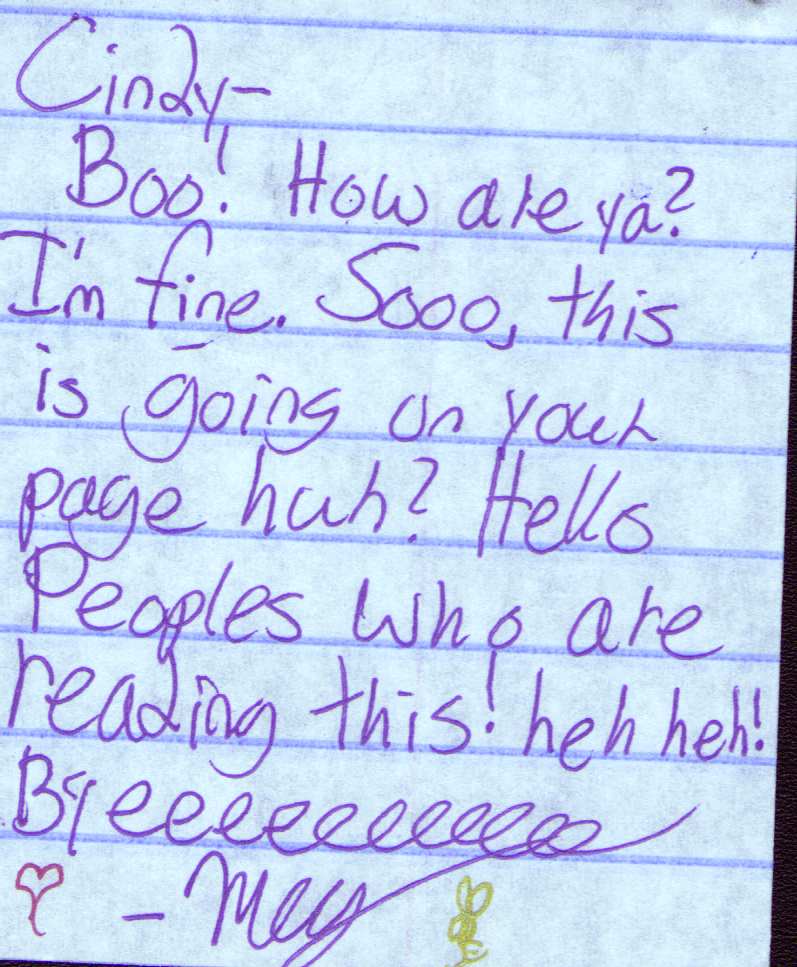 Cindy-
Boo! How are ya?
I'm fine. Sooo, this
is going on your
page huh? Hello
Peoples who are
reading this! heh heh!
Byeeeeeeeeeeeee
- Meg